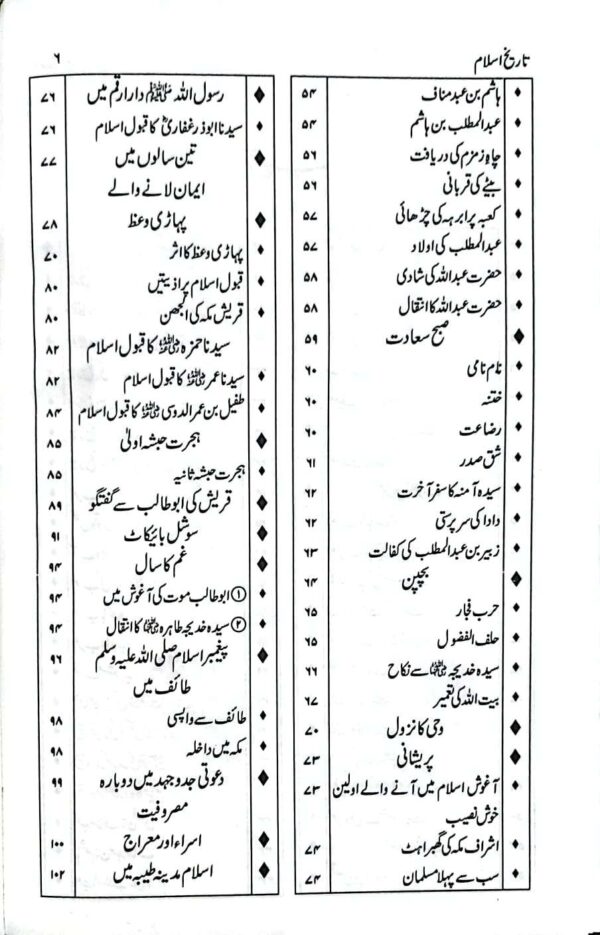 تاریخ اسلام ۶
♦ ہاشم بن عبد مناف ۵۴
♦ عبدالمطلب بن ہاشم ۵۴
♦ چاہ زمزم کی دریافت ۵۶
♦ بیٹے کی قربانی ۵۶
♦ کعبہ پر ابرہہ کی چڑھائی ۵۷
♦ عبدالمطلب کی اولاد ۵۷
♦ حضرت عبداللہ کی شادی ۵۸
♦ حضرت عبداللہ کا انتقال ۵۸
♦ صبح سعادت ۵۹
♦ نام نامی ۶۰
♦ ختنہ ۶۰
♦ رضاعت ۶۰
♦ شق صدر ۶۱
♦ سیدہ آمنہ کا سفر آخرت ۶۲
♦ دادا کی سرپرستی ۶۲
♦ زبیر بن عبدالمطلب کی کفالت ۶۳
♦ بچپن ۶۴
♦ حرب فجار ۶۵
♦ حلف الفضول ۶۵
♦ سیدہ خدیجہ رضی اللہ عنہا سے نکاح ۶۶
♦ بیت اللہ کی تعمیر ۶۷
♦ وحی کا نزول ۷۰
♦ پریشانی ۷۳
♦ آغوش اسلام میں آنے والے اولین ۷۳
خوش نصیب
♦ اشراف مکہ کی گھبراہٹ ۷۴
♦ سب سے پہلا مسلمان ۷۴
♦ رسول اللہ ﷺ دار ارقم میں ۷۶
♦ سیدنا ابوذر غفاریؓ کا قبول اسلام ۷۶
♦ تین سالوں میں ۷۷
ایمان لانے والے
♦ پہاڑی وعظ ۷۸
♦ پہاڑی وعظ کا اثر ۷۰
♦ قبول اسلام پر اذیتیں ۸۰
♦ قریش مکہ کی الجھن ۸۰
سیدنا حمزہ رضی اللہ عنہ کا قبول اسلام ۸۲
♦ سیدنا عمر رضی اللہ عنہ کا قبول اسلام ۸۲
♦ طفیل بن عمر الدوسی رضی اللہ عنہ کا قبول اسلام ۸۴
♦ ہجرت حبشہ اولیٰ ۸۵
♦ ہجرت حبشہ ثانیہ ۸۵
♦ قریش کی ابو طالب سے گفتگو ۸۹
♦ سوشل بائیکاٹ ۹۱
♦ غم کا سال ۹۴
♦ ① ابو طالب موت کی آغوش میں ۹۴
♦ ② سیدہ خدیجہ طاہرہ رضی اللہ عنہا کا انتقال ۹۴
♦ پیغمبر اسلام صلی اللہ علیہ وسلم ۹۶
طائف میں
♦ طائف سے واپسی ۹۸
♦ مکہ میں داخلہ ۹۸
♦ دعوتی جدوجہد میں دوبارہ ۹۹
مصروفیت
♦ اسراء اور معراج ۱۰۰
♦ اسلام مدینہ طیبہ میں ۱۰۲